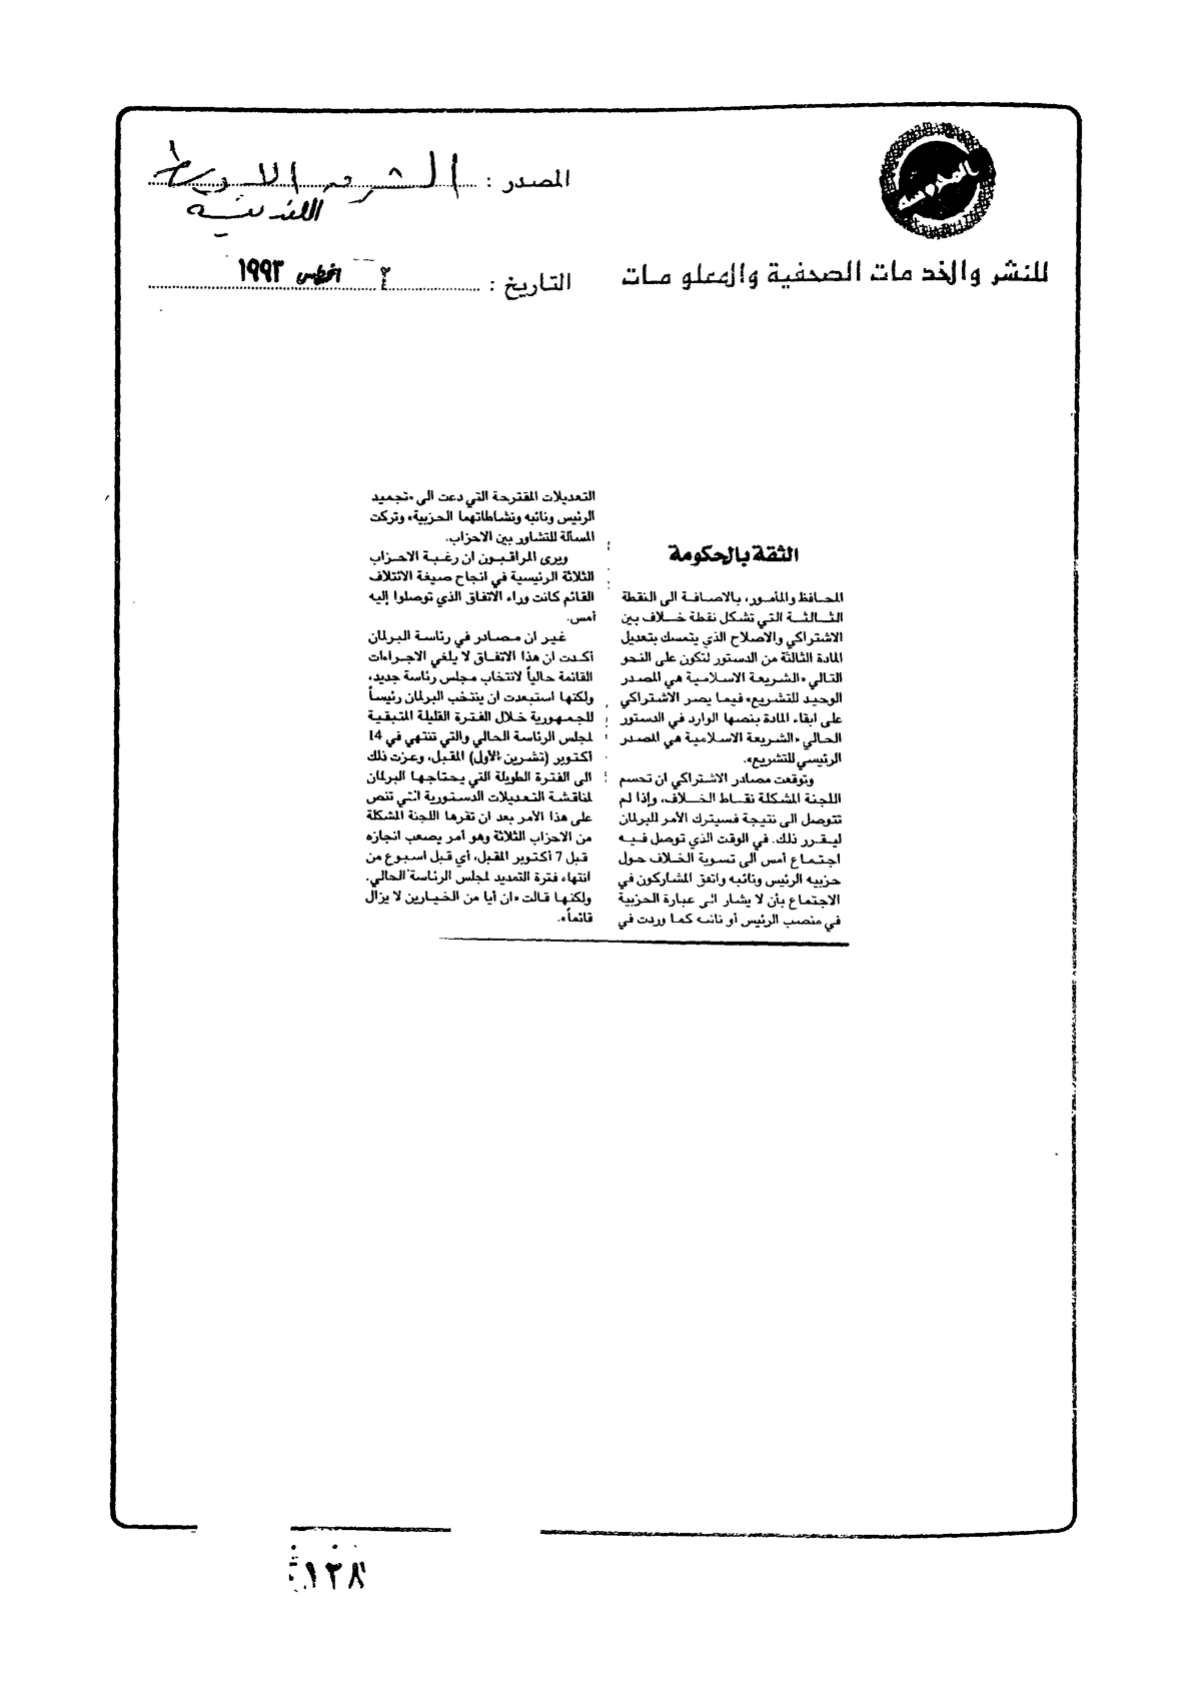 المصدر : الشرق الاوسط
اللندنية
للنشر والخدمات الصحفية والمعلومات
التاريخ : ٣ اغسطس ١٩٩٣
الثقة بالحكومة
المحافظ والمأمور، بالاضافة الى النقطة
الثالثة التي تشكل نقطة خلاف بين
الاشتراكي والاصلاح الذي يتمسك بتعديل
المادة الثالثة من الدستور لتكون على النحو
التالي «الشريعة الاسلامية هي المصدر
الوحيد للتشريع» فيما يصر الاشتراكي
على ابقاء المادة بنصها الوارد في الدستور
الحالي «الشريعة الاسلامية هي المصدر
الرئيسي للتشريع».
وتوقعت مصادر الاشتراكي ان تحسم
اللجنة المشكلة نقاط الخلاف، وإذا لم
تتوصل الى نتيجة فسيترك الأمر للبرلمان
ليقرر ذلك. في الوقت الذي توصل فيه
اجتماع أمس الى تسوية الخلاف حول
حزبيه الرئيس ونائبه واتفق المشاركون في
الاجتماع بأن لا يشار الى عبارة الحزبية
في منصب الرئيس أو نائبه كما وردت في
التعديلات المقترحة التي دعت الى «تجميد
الرئيس ونائبه ونشاطاتهما الحزبية» وتركت
المسالة للتشاور بين الاحزاب.
ويرى المراقبون ان رغبة الاحزاب
الثلاثة الرئيسية في انجاح صيغة الائتلاف
القائم كانت وراء الاتفاق الذي توصلوا إليه
أمس.
غير ان مصادر في رئاسة البرلمان
أكدت ان هذا الاتفاق لا يلغي الاجراءات
القائمة حالياً لانتخاب مجلس رئاسة جديد،
ولكنها استبعدت ان ينتخب البرلمان رئيساً
للجمهورية خلال الفترة القليلة المتبقية
لمجلس الرئاسة الحالي والتي تنتهي في 14
أكتوبر (تشرين الأول) المقبل، وعزت ذلك
الى الفترة الطويلة التي يحتاجها البرلمان
لمناقشة التعديلات الدستورية التي تنص
على هذا الأمر بعد ان تقرها اللجنة المشكلة
من الاحزاب الثلاثة وهو أمر يصعب انجازه
قبل 7 أكتوبر المقبل، أي قبل اسبوع من
انتهاء فترة التمديد لمجلس الرئاسة الحالي.
ولكنها قالت «ان أيا من الخيارين لا يزال
قائماً».
١٢٨